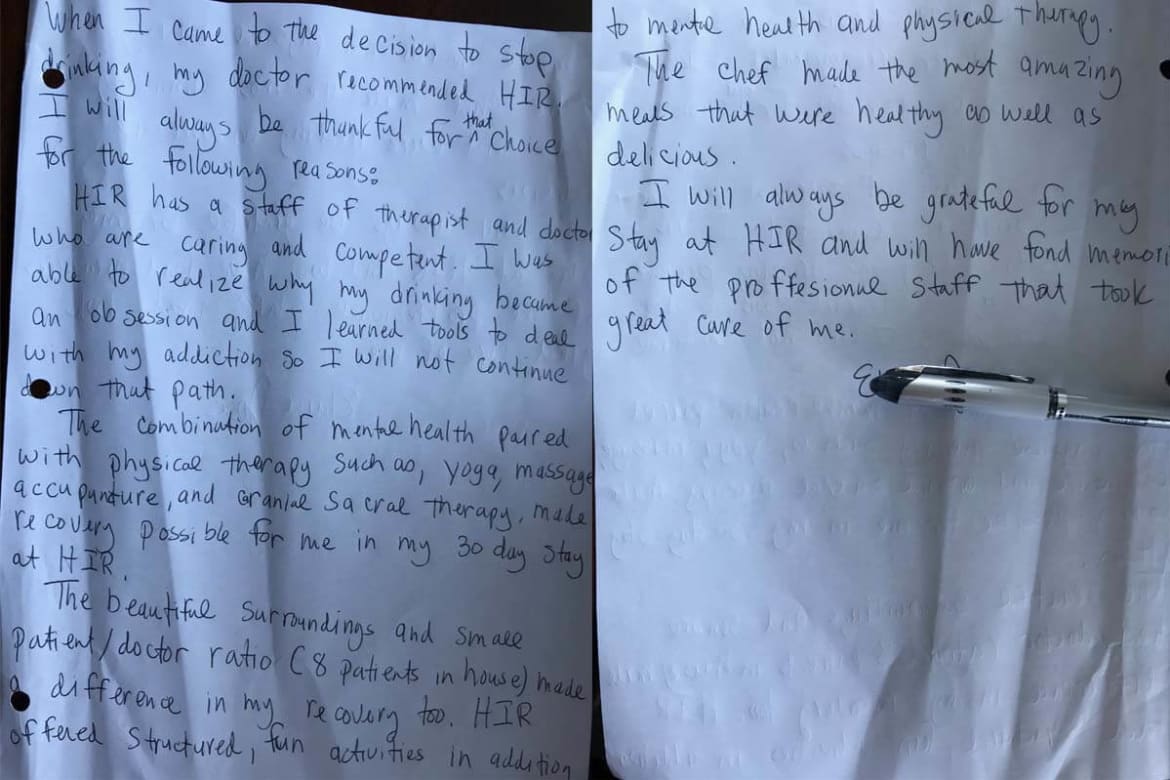 When I came to the decision to stop
drinking, my doctor recommended HIR.
I will always be thankful for that choice
for the following reasons:
HIR has a staff of therapist and doctor
who are caring and competent. I was
able to realize why my drinking became
an obsession and I learned tools to deal
with my addiction so I will not continue
down that path.
The combination of mental health paired
with physical therapy such as, yoga, massage
accupunture, and Cranial Sacral therapy, made
recovery possible for me in my 30 day stay
at HIR.
The beautiful surroundings and small
patient/doctor ratio (8 patients in house) made
a difference in my recovery too. HIR
offered structured, fun activities in addition
to mental health and physical therapy.
The chef made the most amazing
meals that were healthy as well as
delicious.
I will always be grateful for my
stay at HIR and will have fond memori
of the proffesional staff that took
great care of me.